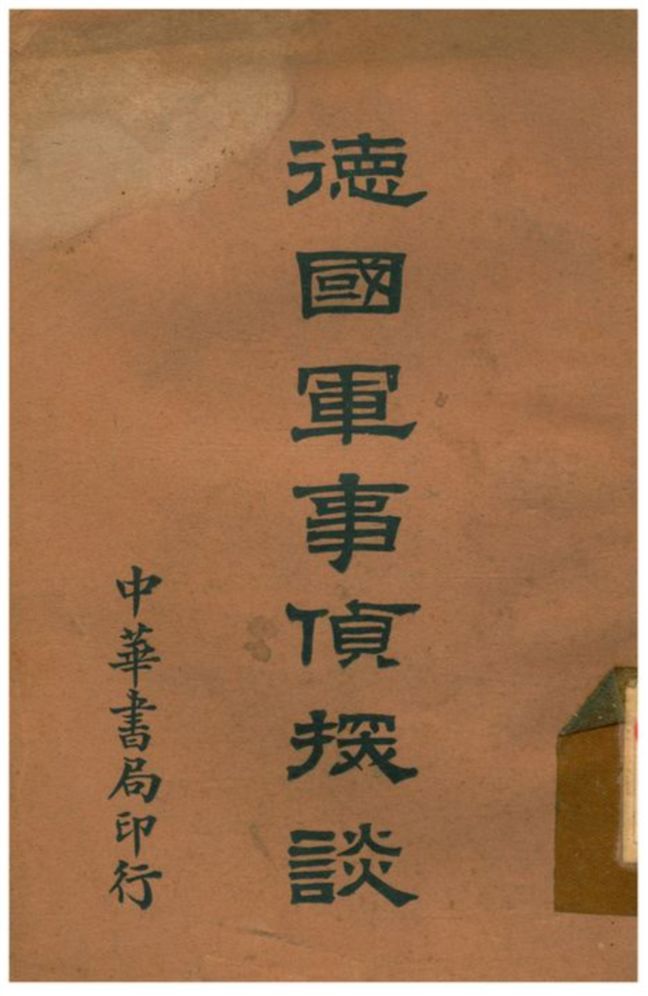 德國軍事偵探談
中華書局印行